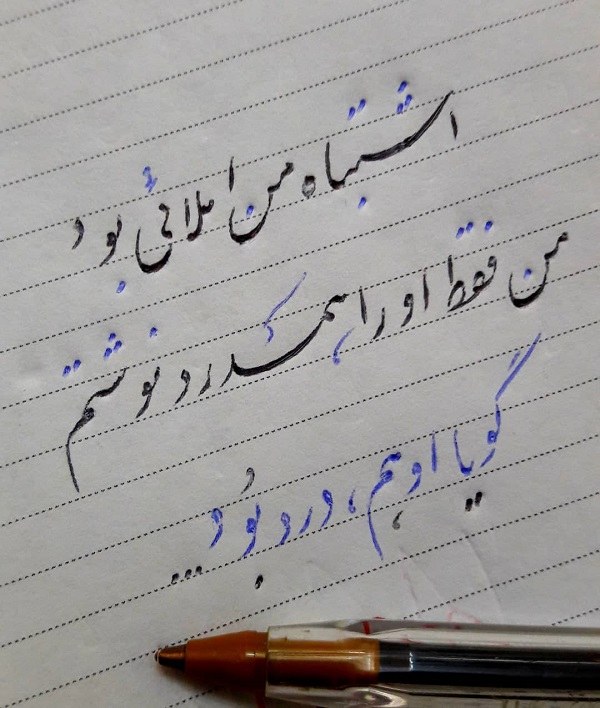 اشتباه من املائی بود
من فقط او را همدرد نوشتم
گویا او هم، درد بُود...